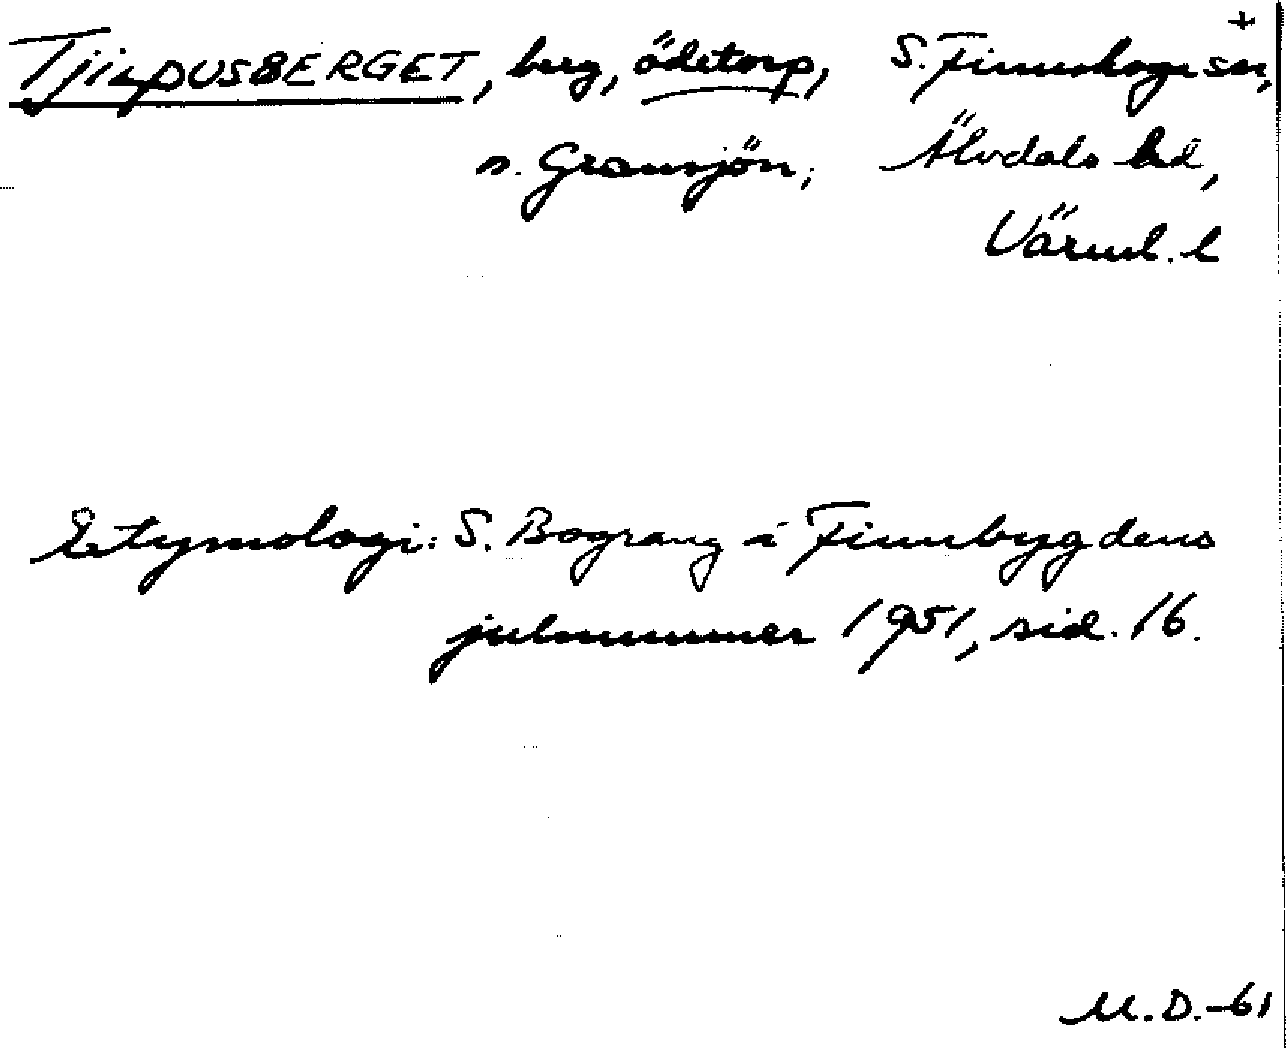 +
TJILPUSBERGET, berg, ödetorp, S. Finnskoga sn,
n. Gransjön; Älvdals hd,
Värml. l
Etymologi: S. Bograng i Finnbygdens
julnummer 1951, sid. 16.
M.D.-61